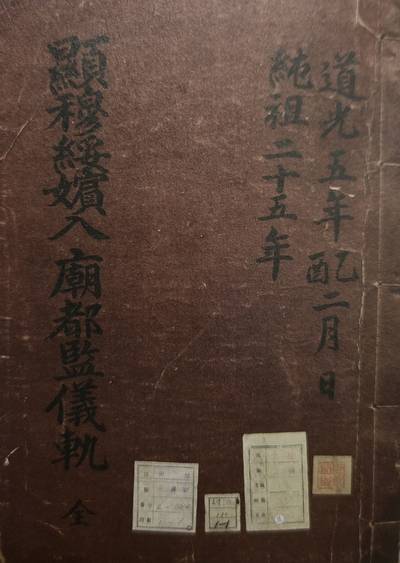 道光五年乙酉二月 日
純祖二十五年
顯穆綏嬪入廟都監儀軌 全